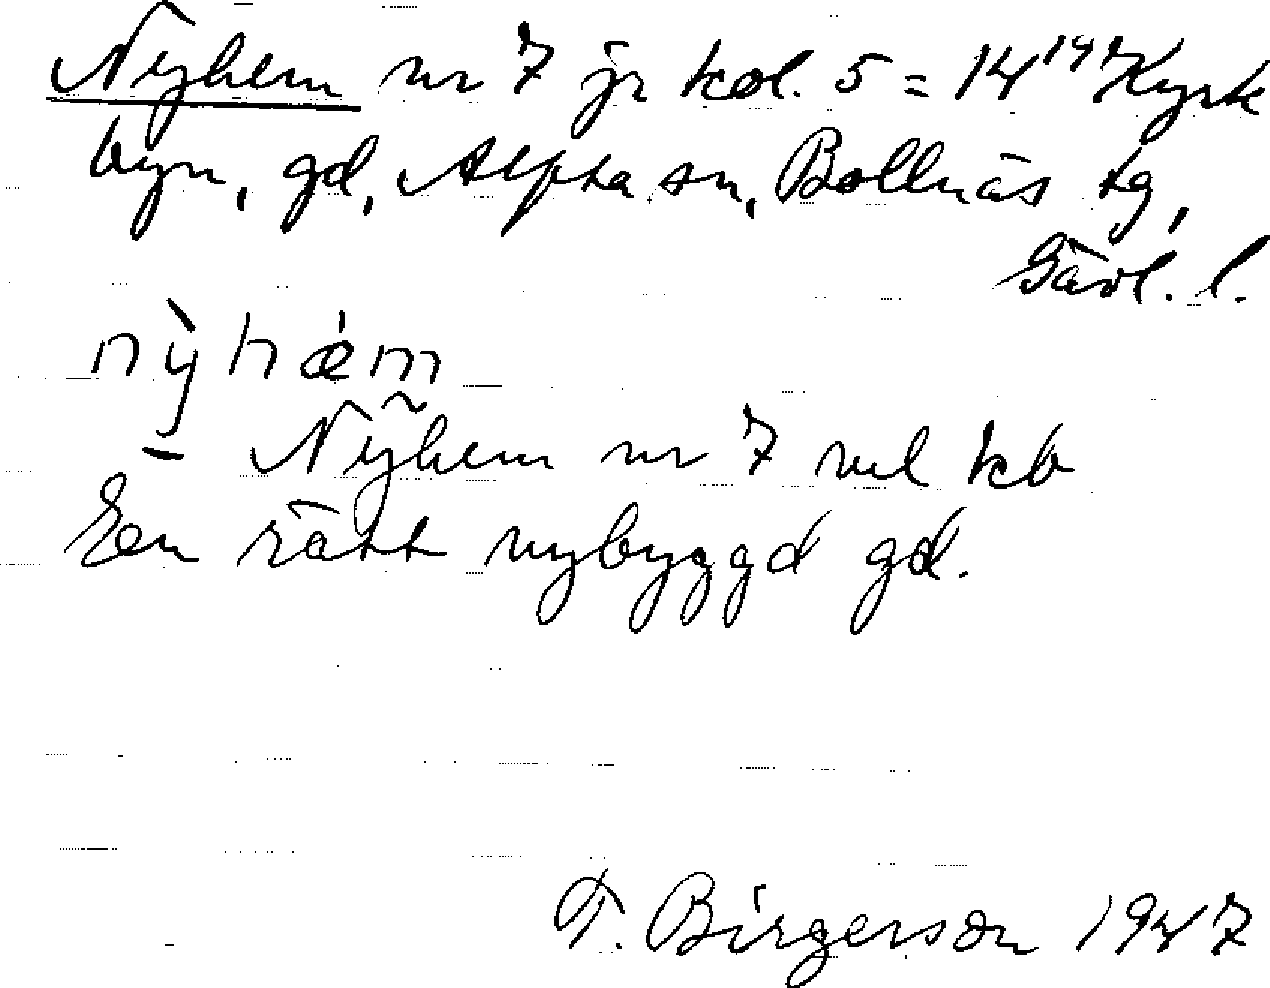 Nyhem nr 7 jr kol. 5 = 14¹⁴¹ Kyrk
byn, gd, Alfta sn, Bollnäs tg,
Gävl. l.
nỳhæ̀m
Nyhem nr 7 vid kb
En rätt nybyggd gd.
T. Birgerson 1947